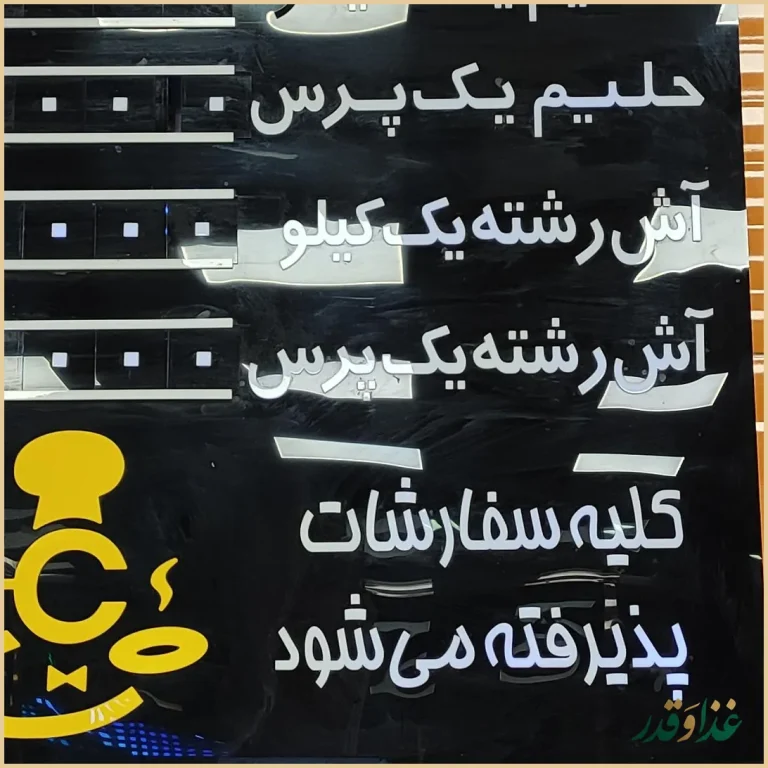 حلیم یک پرس
۰۰۰
آش رشته یک کیلو
۰۰۰
آش رشته یک پرس
۰۰۰
کلیه سفارشات
پذیرفته می شود
غذا و قدر